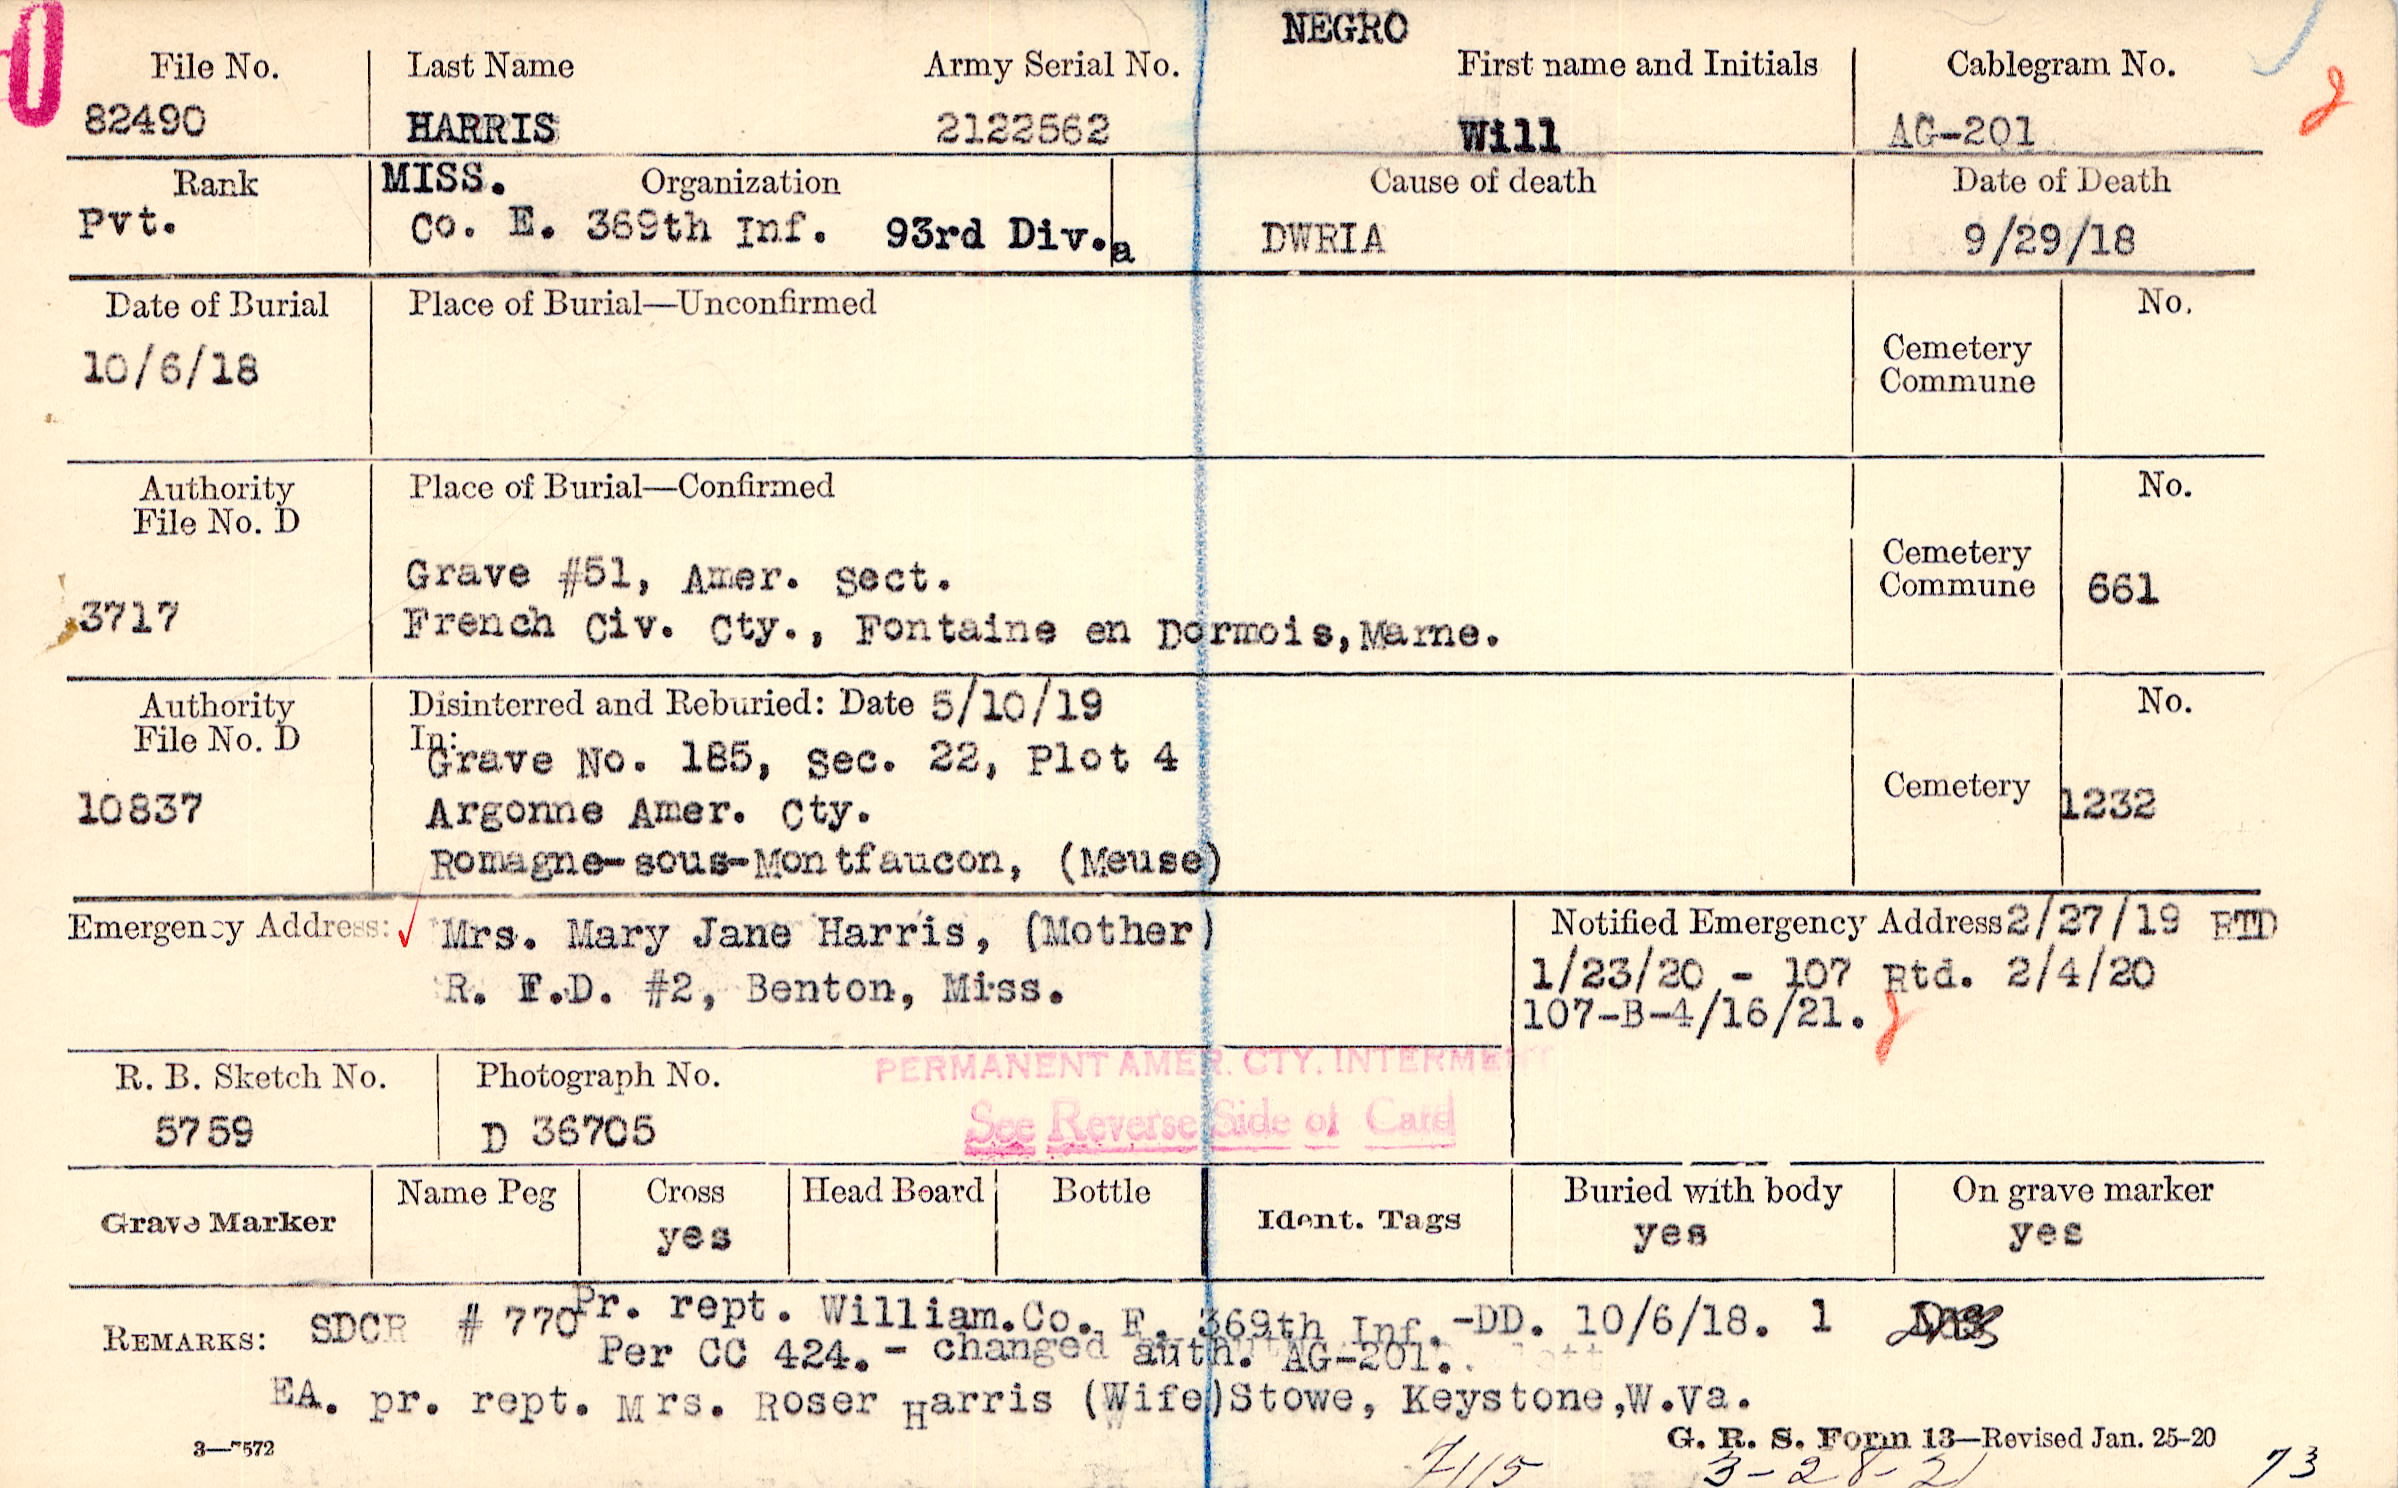 NEGRO
File No. Last Name Army Serial No. First name and Initials Cablegram No.
82490 HARRIS 2122562 Will AG-201
Rank MISS. Organization Cause of death Date of Death
Pvt. Co. E. 369th Inf. 93rd Div.a DWRIA 9/29/18
Date of Burial Place of Burial—Unconfirmed No.
10/6/18 Cemetery
Commune
Authority Place of Burial—Confirmed No.
File No. D
Grave #51, Amer. Sect. Cemetery
3717 Commune 661
French Civ. Cty., Fontaine en Dormois, Marne.
Authority Disinterred and Reburied: Date 5/10/19 No.
File No. D In:
Grave No. 185, Sec. 22, Plot 4
10837 Argonne Amer. Cty. Cemetery 1232
Romagne-sous-Montfaucon, (Meuse)
Emergency Address: Mrs. Mary Jane Harris, (Mother) Notified Emergency Address 2/27/19 RTD
R. F.D. #2, Benton, Miss. 1/23/20 - 107 Rtd. 2/4/20
107-B-4/16/21.
R. B. Sketch No. Photograph No. PERMANENT AMER. CTY. INTERMENT
5759 D 36705 See Reverse Side of Card
Grave Marker Name Peg Cross Head Board Bottle Ident. Tags Buried with body On grave marker
yes yes yes
REMARKS: SDCR # 770 Pr. rept. William.Co. F. 369th Inf.-DD. 10/6/18. 1
Per CC 424.- changed auth. AG-201.
EA. pr. rept. Mrs. Roser Harris (Wife)Stowe, Keystone,W.Va.
3—7572 G. R. S. Form 13—Revised Jan. 25-20
7115 3-28-21 73